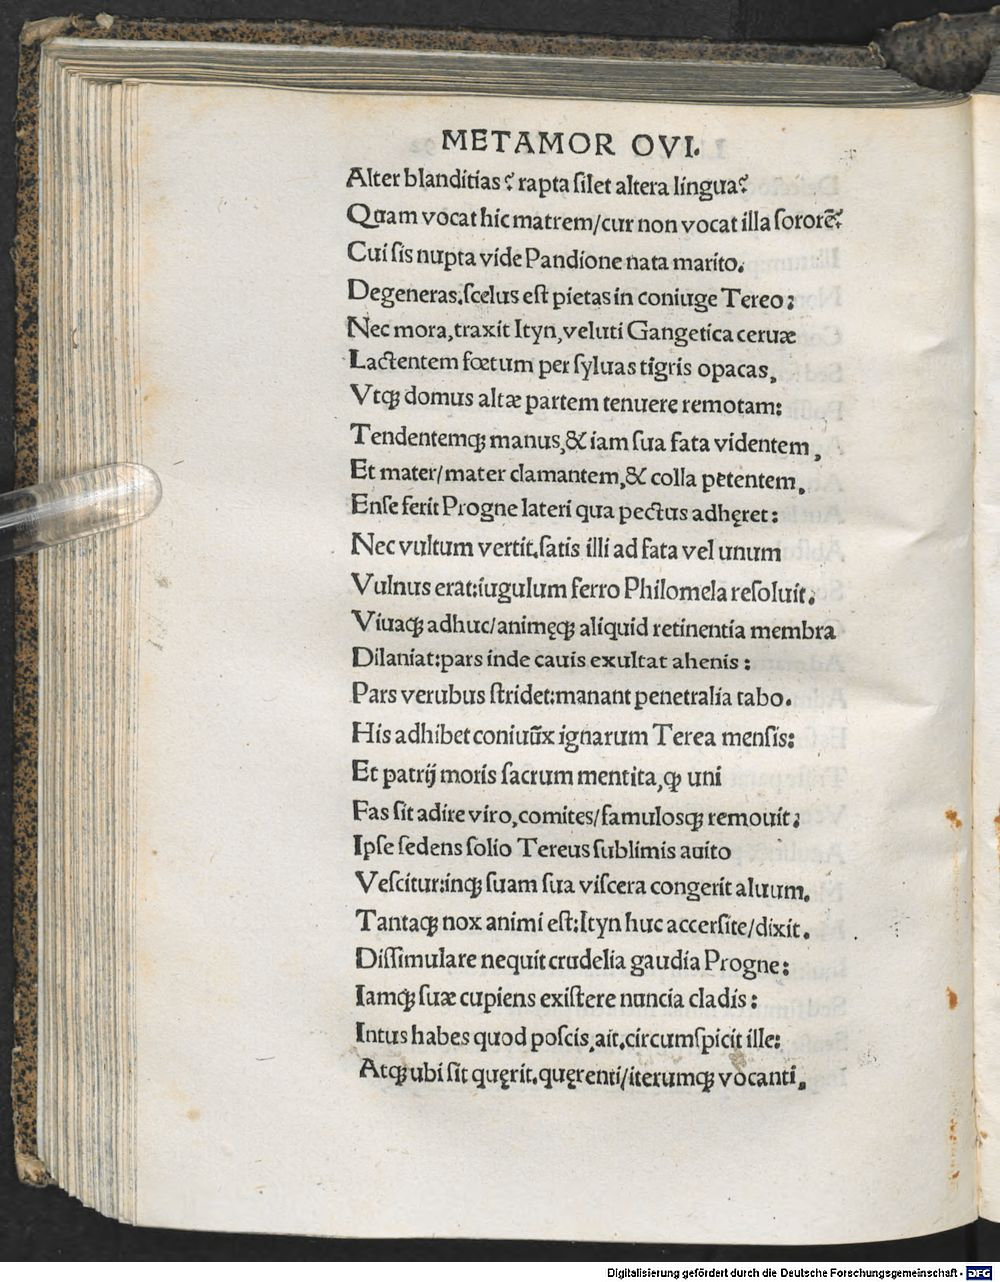 METAMOR OVI.
Alter blanditias? rapta ſilet altera lingua?
Quam vocat hic matrem/cur non vocat illa ſororē?
Cui ſis nupta vide Pandione nata marito.
Degeneras.ſcelus eſt pietas in coniuge Tereo:
Nec mora,traxit Ityn,veluti Gangetica ceruæ
Lactentem fœtum per ſyluas tigris opacas,
Vtqꝫ domus altæ partem tenuere remotam:
Tendentemqꝫ manus,& iam ſua fata videntem,
Et mater/mater clamantem,& colla petentem,
Enſe ferit Progne lateri qua pectus adhęret:
Nec vultum vertit.ſatis illi ad fata vel unum
Vulnus erat:iugulum ferro Philomela reſoluit.
Viuaqꝫ adhuc/animęqꝫ aliquid retinentia membra
Dilaniat:pars inde cauis exultat ahenis:
Pars verubus ſtridet:manant penetralia tabo.
His adhibet coniuūx ignarum Terea menſis:
Et patrij moris ſacrum mentita,ꝙ uni
Fas ſit adire viro,comites/famulosqꝫ remouit:
Ipſe ſedens ſolio Tereus ſublimis auito
Veſcitur:inqꝫ ſuam ſua viſcera congerit aluum.
Tantaqꝫ nox animi eſt:Ityn huc accerſite/dixit.
Diſſimulare nequit crudelia gaudia Progne:
Iamqꝫ ſuæ cupiens exiſtere nuncia cladis:
Intus habes quod poſcis,ait.circumſpicit ille:
Atqꝫ ubi ſit quęrit.quęrenti/iterumqꝫ vocanti,
Digitalisierung gefördert durch die Deutsche Forschungsgemeinschaft - DFG